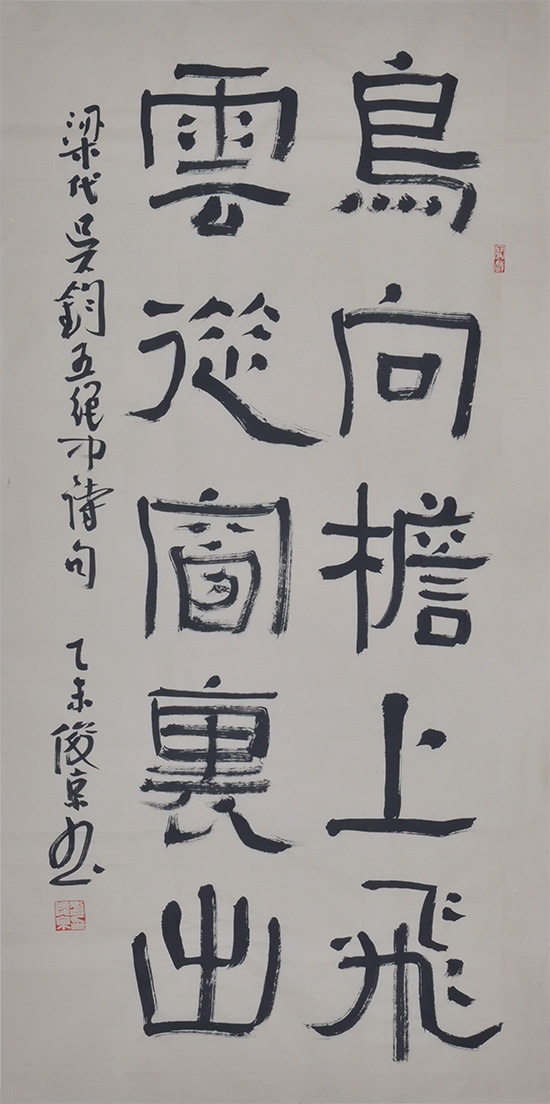 鳥向檐上飛
雲從窗裏出
梁代吳鈞五絕中詩句 乙未俊京书